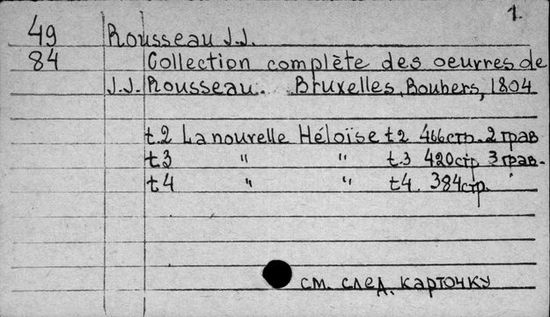 1.
49 Rousseau J.J.
84 Collection complète des oeurres de
J.J. Rousseau. Bruxelles, Boubers, 1804
t.2 La nouvelle Héloïse t.2 466стр. 2 грав.
t.3 " " t.3 420стр 3 грав.
t4 " " t4. 384стр.
см. след. карточку